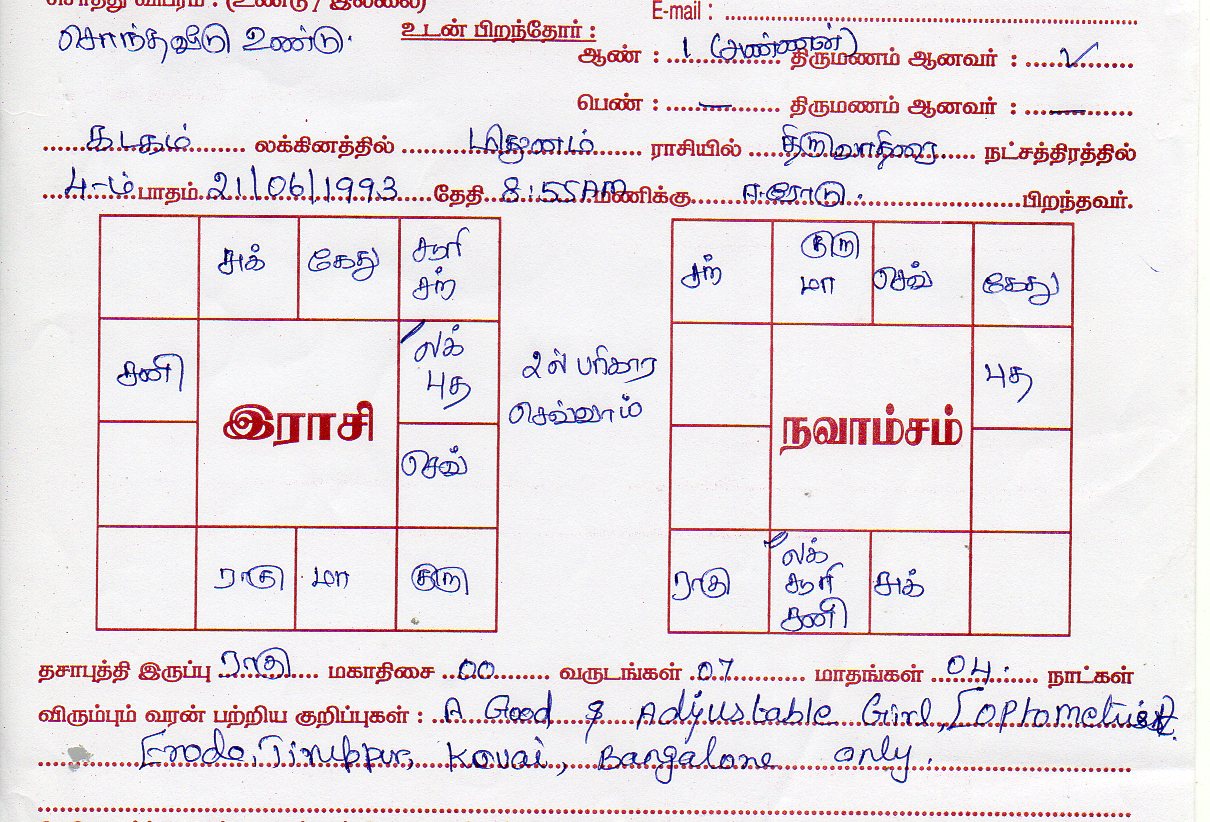 சொத்து விபரம் : (உண்டு / இல்லை)
E-mail : ..........
சொந்தவீடு உண்டு.
உடன் பிறந்தோர் :
ஆண் : 1 (அண்ணன்) திருமணம் ஆனவர் : ✓
பெண் : — திருமணம் ஆனவர் : —
கடகம் லக்கினத்தில் மிதுனம் ராசியில் திருவாதிரை நட்சத்திரத்தில்
4-ம் பாதம் 21/06/1993 தேதி 8:55AM மணிக்கு ஈரோடு. பிறந்தவர்.
சுக்
கேது
சூரி
சந்
சனி
லக்
புத
செவ்
ராகு
மா
குரு
இராசி
2ல் பரிகார
செவ்வாய்
சந்
குரு
மா
செவ்
கேது
புத
நவாம்சம்
ராகு
லக்
சூரி
சனி
சுக்
தசாபுத்தி இருப்பு ராகு மகாதிசை 00 வருடங்கள் 07 மாதங்கள் 04. நாட்கள்
விரும்பும் வரன் பற்றிய குறிப்புகள் : A Good & Adjustable Girl, [optometrist].
Erode, Tiruppur, Kovai, Bangalore only.